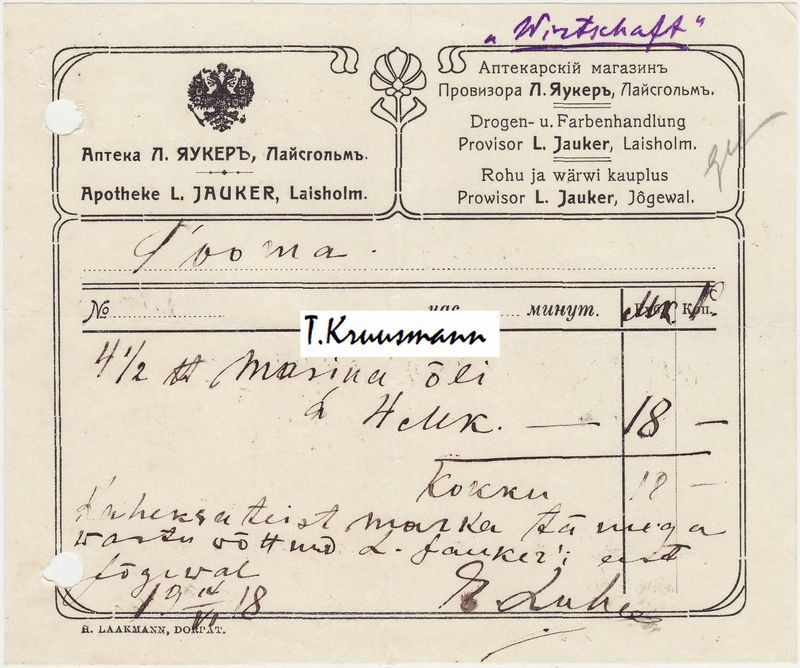 „Wirtschaft"
Аптека Л. ЯУКЕРЪ, Лайсгольмъ.
Apotheke L. JAUKER, Laisholm.
Аптекарскій магазинъ
Провизора Л. Яукеръ, Лайсгольмъ.
Drogen- u. Farbenhandlung
Provisor L. Jauker, Laisholm.
Rohu ja wärwi kauplus
Prowisor L. Jauker, Jôgewal.
Sooma.
№ час. минут. Mk Коп.
T.Kruusmann
4 1/2 ℔ masina õli
à 4 Mk. — 18 —
Kokku 18 —
Kaheksateist marka tämega
wastu wõttnud L. Jauker'i eest
Jõgewal
18
H. LAAKMANN, DORPAT.